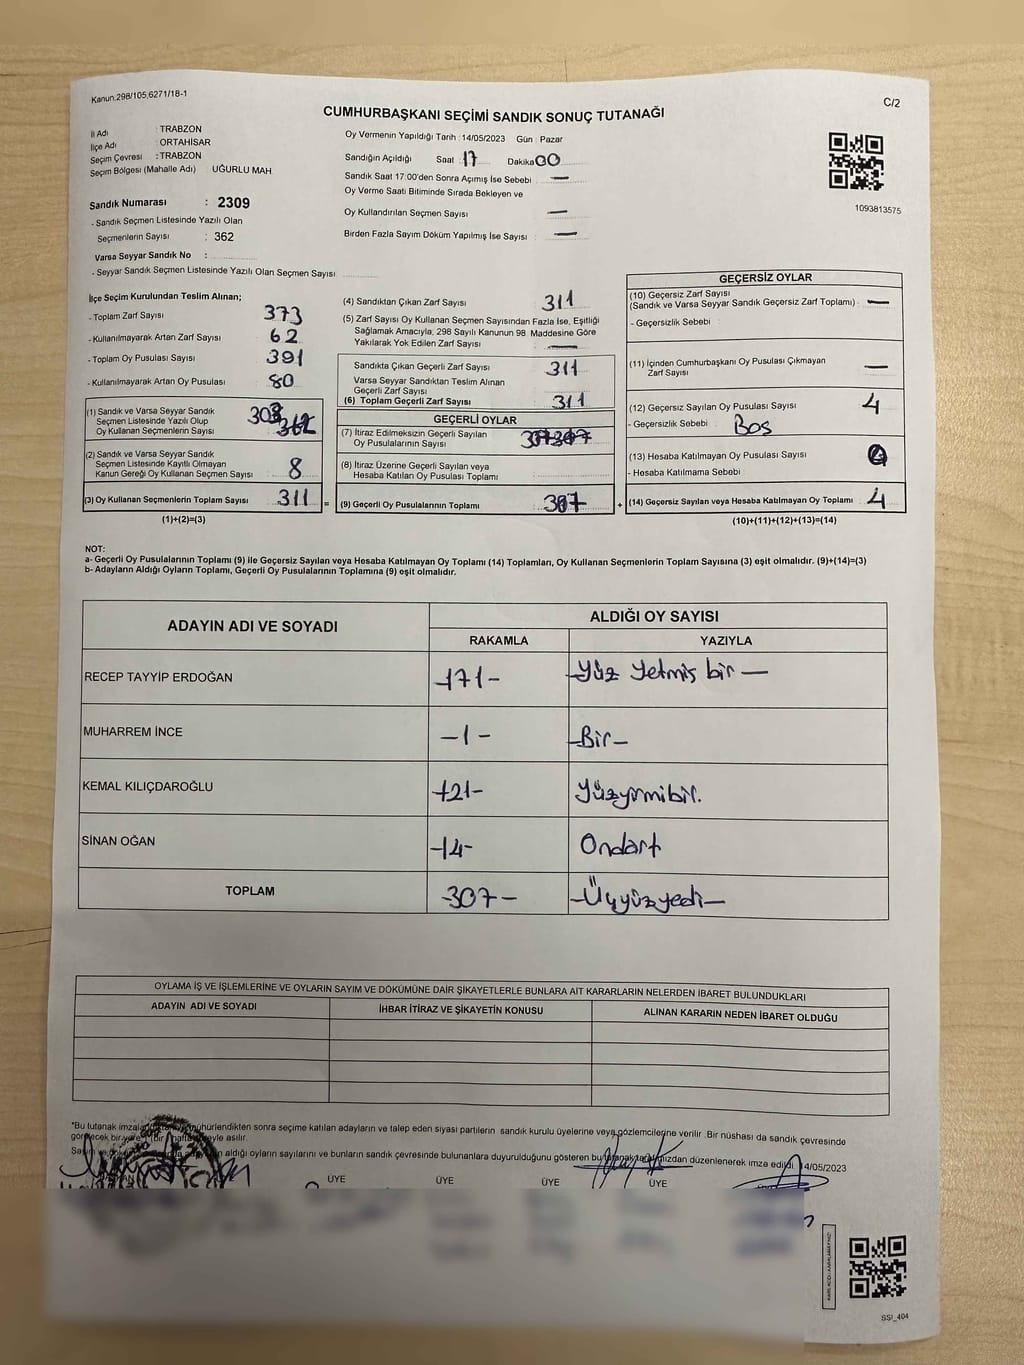 Kanun:298/105,6271/18-1
C/2
CUMHURBAŞKANI SEÇİMİ SANDIK SONUÇ TUTANAĞI
İl Adı : TRABZON
İlçe Adı : ORTAHİSAR
Seçim Çevresi : TRABZON
Seçim Bölgesi (Mahalle Adı) UĞURLU MAH
Sandık Numarası : 2309
- Sandık Seçmen Listesinde Yazılı Olan
Seçmenlerin Sayısı : 362
Varsa Seyyar Sandık No :
- Seyyar Sandık Seçmen Listesinde Yazılı Olan Seçmen Sayısı
Oy Vermenin Yapıldığı Tarih : 14/05/2023 Gün : Pazar
Sandığın Açıldığı Saat : 17 Dakika 00
Sandık Saat 17:00'den Sonra Açımış İse Sebebi : —
Oy Verme Saati Bitiminde Sırada Bekleyen ve
Oy Kullandırılan Seçmen Sayısı —
Birden Fazla Sayım Döküm Yapılmış İse Sayısı : —
1093813575
İlçe Seçim Kurulundan Teslim Alınan;
- Toplam Zarf Sayısı 373
- Kullanılmayarak Artan Zarf Sayısı 62
- Toplam Oy Pusulası Sayısı 391
- Kullanılmayarak Artan Oy Pusulası 80
(1) Sandık ve Varsa Seyyar Sandık
Seçmen Listesinde Yazılı Olup
Oy Kullanan Seçmenlerin Sayısı
(2) Sandık ve Varsa Seyyar Sandık
Seçmen Listesinde Kayıtlı Olmayan
Kanun Gereği Oy Kullanan Seçmen Sayısı 8
(3) Oy Kullanan Seçmenlerin Toplam Sayısı 311 =
(1)+(2)=(3)
(4) Sandıktan Çıkan Zarf Sayısı 311
(5) Zarf Sayısı Oy Kullanan Seçmen Sayısından Fazla İse, Eşitliği
Sağlamak Amacıyla, 298 Sayılı Kanunun 98. Maddesine Göre
Yakılarak Yok Edilen Zarf Sayısı —
Sandıkta Çıkan Geçerli Zarf Sayısı 311
Varsa Seyyar Sandıktan Teslim Alınan
Geçerli Zarf Sayısı
(6) Toplam Geçerli Zarf Sayısı 311
GEÇERLİ OYLAR
(7) İtiraz Edilmeksizin Geçerli Sayılan
Oy Pusulalarının Sayısı
(8) İtiraz Üzerine Geçerli Sayılan veya
Hesaba Katılan Oy Pusulası Toplamı
(9) Geçerli Oy Pusulalarının Toplamı 307 +
GEÇERSİZ OYLAR
(10) Geçersiz Zarf Sayısı
(Sandık ve Varsa Seyyar Sandık Geçersiz Zarf Toplamı) —
- Geçersizlik Sebebi
(11) İçinden Cumhurbaşkanı Oy Pusulası Çıkmayan
Zarf Sayısı —
(12) Geçersiz Sayılan Oy Pusulası Sayısı 4
- Geçersizlik Sebebi : Boş
(13) Hesaba Katılmayan Oy Pusulası Sayısı
- Hesaba Katılmama Sebebi
(14) Geçersiz Sayılan veya Hesaba Katılmayan Oy Toplamı 4
(10)+(11)+(12)+(13)=(14)
NOT:
a- Geçerli Oy Pusulalarının Toplamı (9) ile Geçersiz Sayılan veya Hesaba Katılmayan Oy Toplamı (14) Toplamları, Oy Kullanan Seçmenlerin Toplam Sayısına (3) eşit olmalıdır. (9)+(14)=(3)
b- Adayların Aldığı Oyların Toplamı, Geçerli Oy Pusulalarının Toplamına (9) eşit olmalıdır.
ADAYIN ADI VE SOYADI
ALDIĞI OY SAYISI
RAKAMLA YAZIYLA
RECEP TAYYİP ERDOĞAN -171- -Yüz Yetmiş bir-
MUHARREM İNCE -1- -Bir-
KEMAL KILIÇDAROĞLU 121- Yüzyirmibir.
SİNAN OĞAN -14- Ondört
TOPLAM -307- -Üçyüzyedi-
OYLAMA İŞ VE İŞLEMLERİNE VE OYLARIN SAYIM VE DÖKÜMÜNE DAİR ŞİKAYETLERLE BUNLARA AİT KARARLARIN NELERDEN İBARET BULUNDUKLARI
ADAYIN ADI VE SOYADI İHBAR İTİRAZ VE ŞİKAYETİN KONUSU ALINAN KARARIN NEDEN İBARET OLDUĞU
"Bu tutanak sonra seçime katılan adayların ve talep eden siyasi partilerin sandık kurulu üyelerine veya gözlemcilerine verilir .Bir nüshası da sandık çevresinde
asılır.
aldığı oyların sayılarını ve bunların sandık çevresinde bulunanlara duyurulduğunu gösteren bu düzenlenerek imza edildi. 14/05/2023
ÜYE ÜYE ÜYE ÜYE
SSI_404